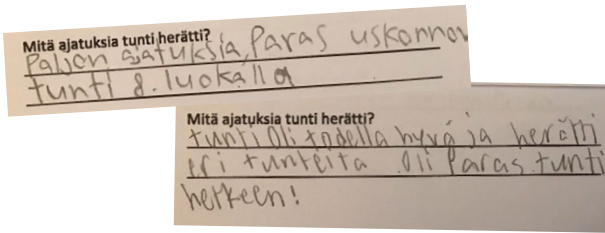 Mitä ajatuksia tunti herätti?
Paljon ajatuksia, Paras uskonnon
tunti 8. luokalla
Mitä ajatuksia tunti herätti?
tunti oli todella hyvä ja herätti
eri tunteita oli Paras tunti
hetkeen!